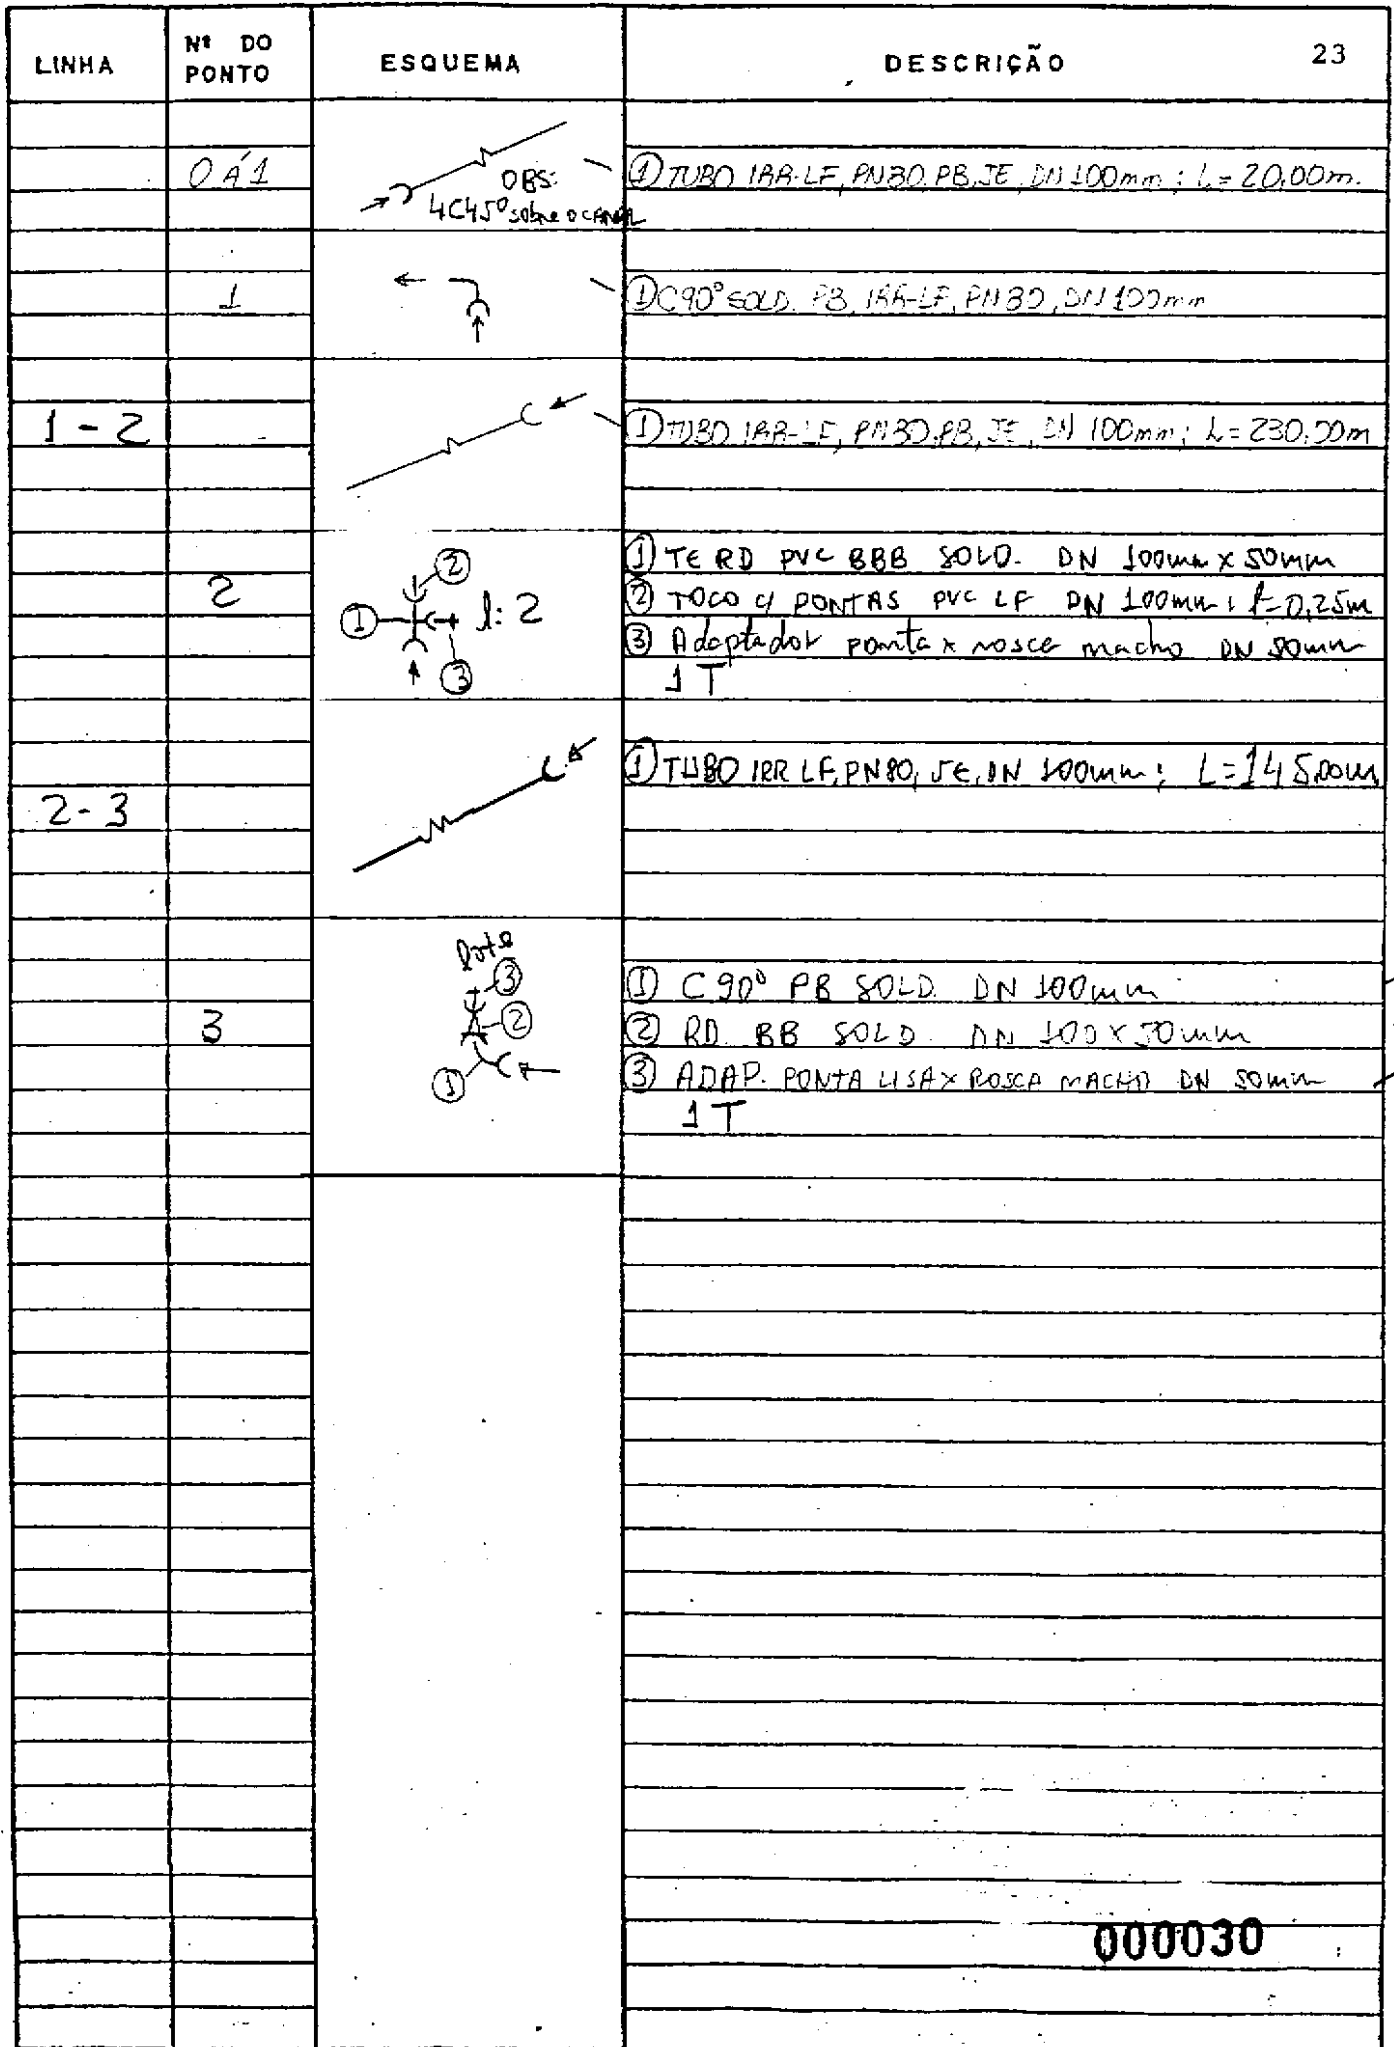 LINHA Nº DO PONTO ESQUEMA DESCRIÇÃO 23
0 Á 1 OBS: 4C45º sobre o CANAL ① TUBO IRR-LF, PN80, PB, JE, DN 100mm; L=20,00m.
1 ① C90° SOLD. PB, IRR-LF, PN80, DN 100mm
1-2 ① TUBO IRR-LF, PN80, PB, JE, DN 100mm; L=230,00m
① TE RD PVC BBB SOLD. DN 100mm x 50mm
2 ① ② ③ l: 2 ② TOCO c/ PONTAS PVC LF DN 100mm; l=0,25m
③ Adaptador ponta x rosca macho DN 50mm
1 T
① TUBO IRR LF, PN80, JE, DN 100mm; L=145,00m
2-3
lote
③ ① C 90° PB SOLD. DN 100mm
3 ② ② RD. BB SOLD. DN 100 X 50mm
① ③ ADAP. PONTA LISA X ROSCA MACHO DN 50mm
1 T
000030